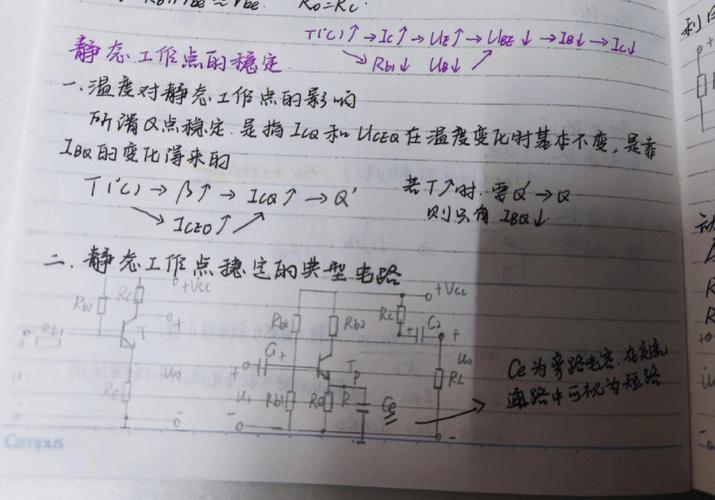 R₀=Rc
静态工作点的稳定
T(℃)↑→Ic↑→UE↑→UBE↓→IB↓→Ic↓
Rb1↓ UB↓
一、温度对静态工作点的影响
所谓Q点稳定,是指ICQ和UCEQ在温度变化时基本不变,是靠
IBQ的变化得来的
T(℃)→β↑→ICQ↑→Q'
ICEO↑
若T↑时,要Q'→Q
则只有IBQ↓
二、静态工作点稳定的典型电路
+Vcc
Rb2 Rc
T
Rb1
Re
+Vcc
Rb2 Rb2 Rc C2
C1
T
Rb1 Re Ce RL
Ce为旁路电容,在交流
通路中可视为短路
Campus